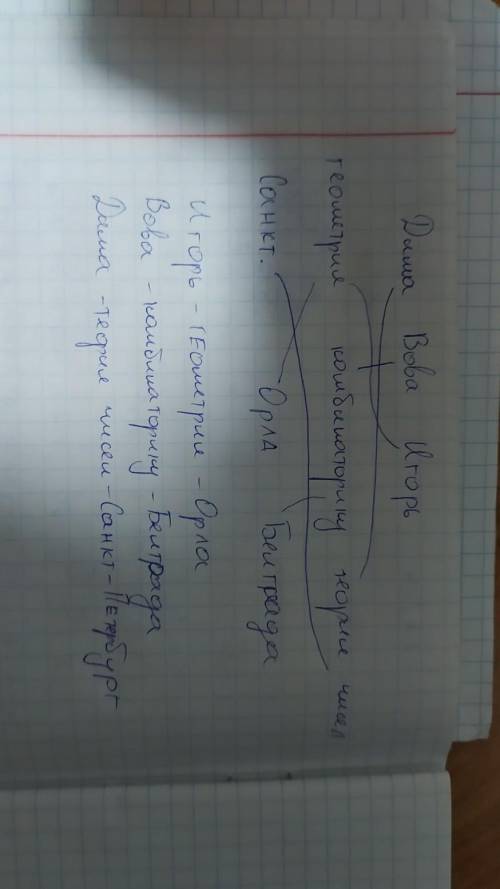 Дима Вова Игорь
геометрия комбинаторику теории чисел
Санкт. Орла Белграда
Игорь - Геометрии - Орла
Вова - комбинаторику - Белграда
Дима - теории чисел - Санкт-Петербург